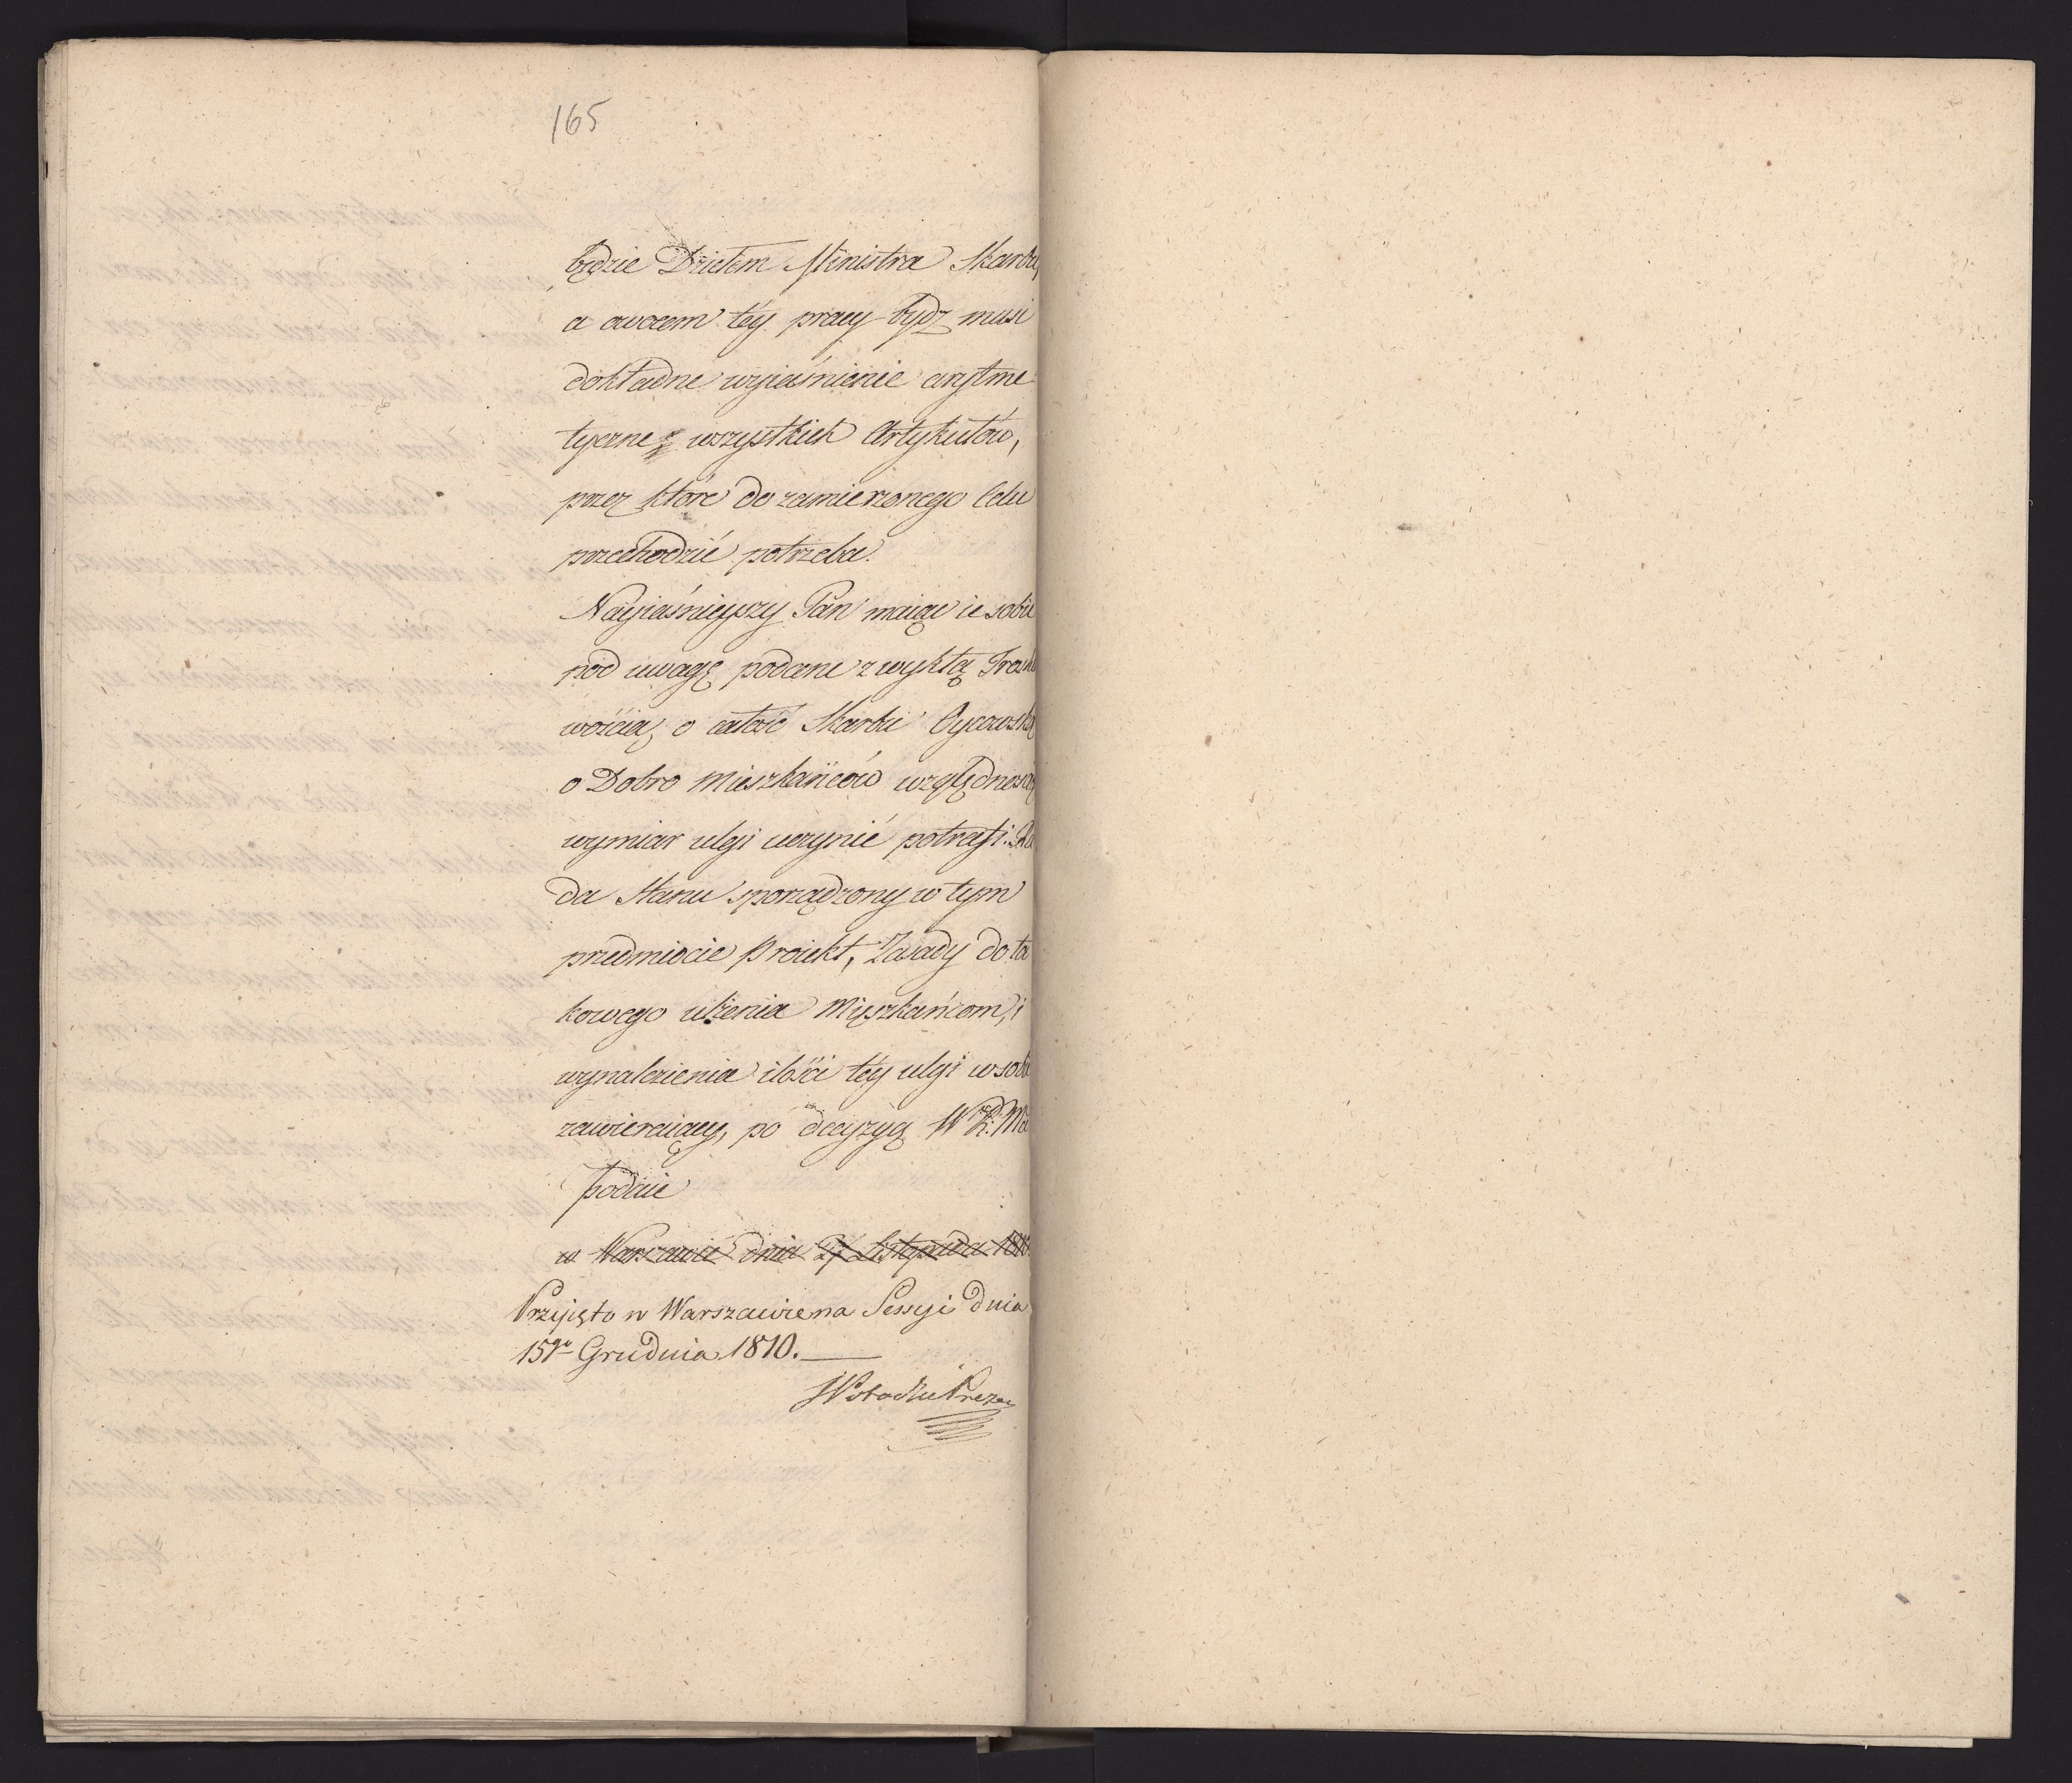 165
będzie Dziełem Ministra Skarbu,
a owocem téy pracy bydz musi
dokładne wyiaśnienie arytme
tyczne wszystkich Artykułów,
przez które do zamierzonego Celu
przechodzić potrzeba.
Nayiaśnieyszy Pan maiąc ie sobie
pod uwagę podane zwykłą Troskli
wością, o całość Skarbu Oycowską
o Dobro Mieszkańców względnością
wymiar ulgi uczynić potrafi. Ra
da Stanu sporządzony w tym
przedmiocie Proiekt, Zasady do ta
kowego ulżenia Myszkańcom, i
wynalezienia ilości téy ulgi w sobie
zawieraiący, po decyzyą W. K. Mci
podaie
w Warszawie dnia 27 Listopada 1810
Przyięto w Warszawie na Sessyi dnia
15go Grudnia 1810.